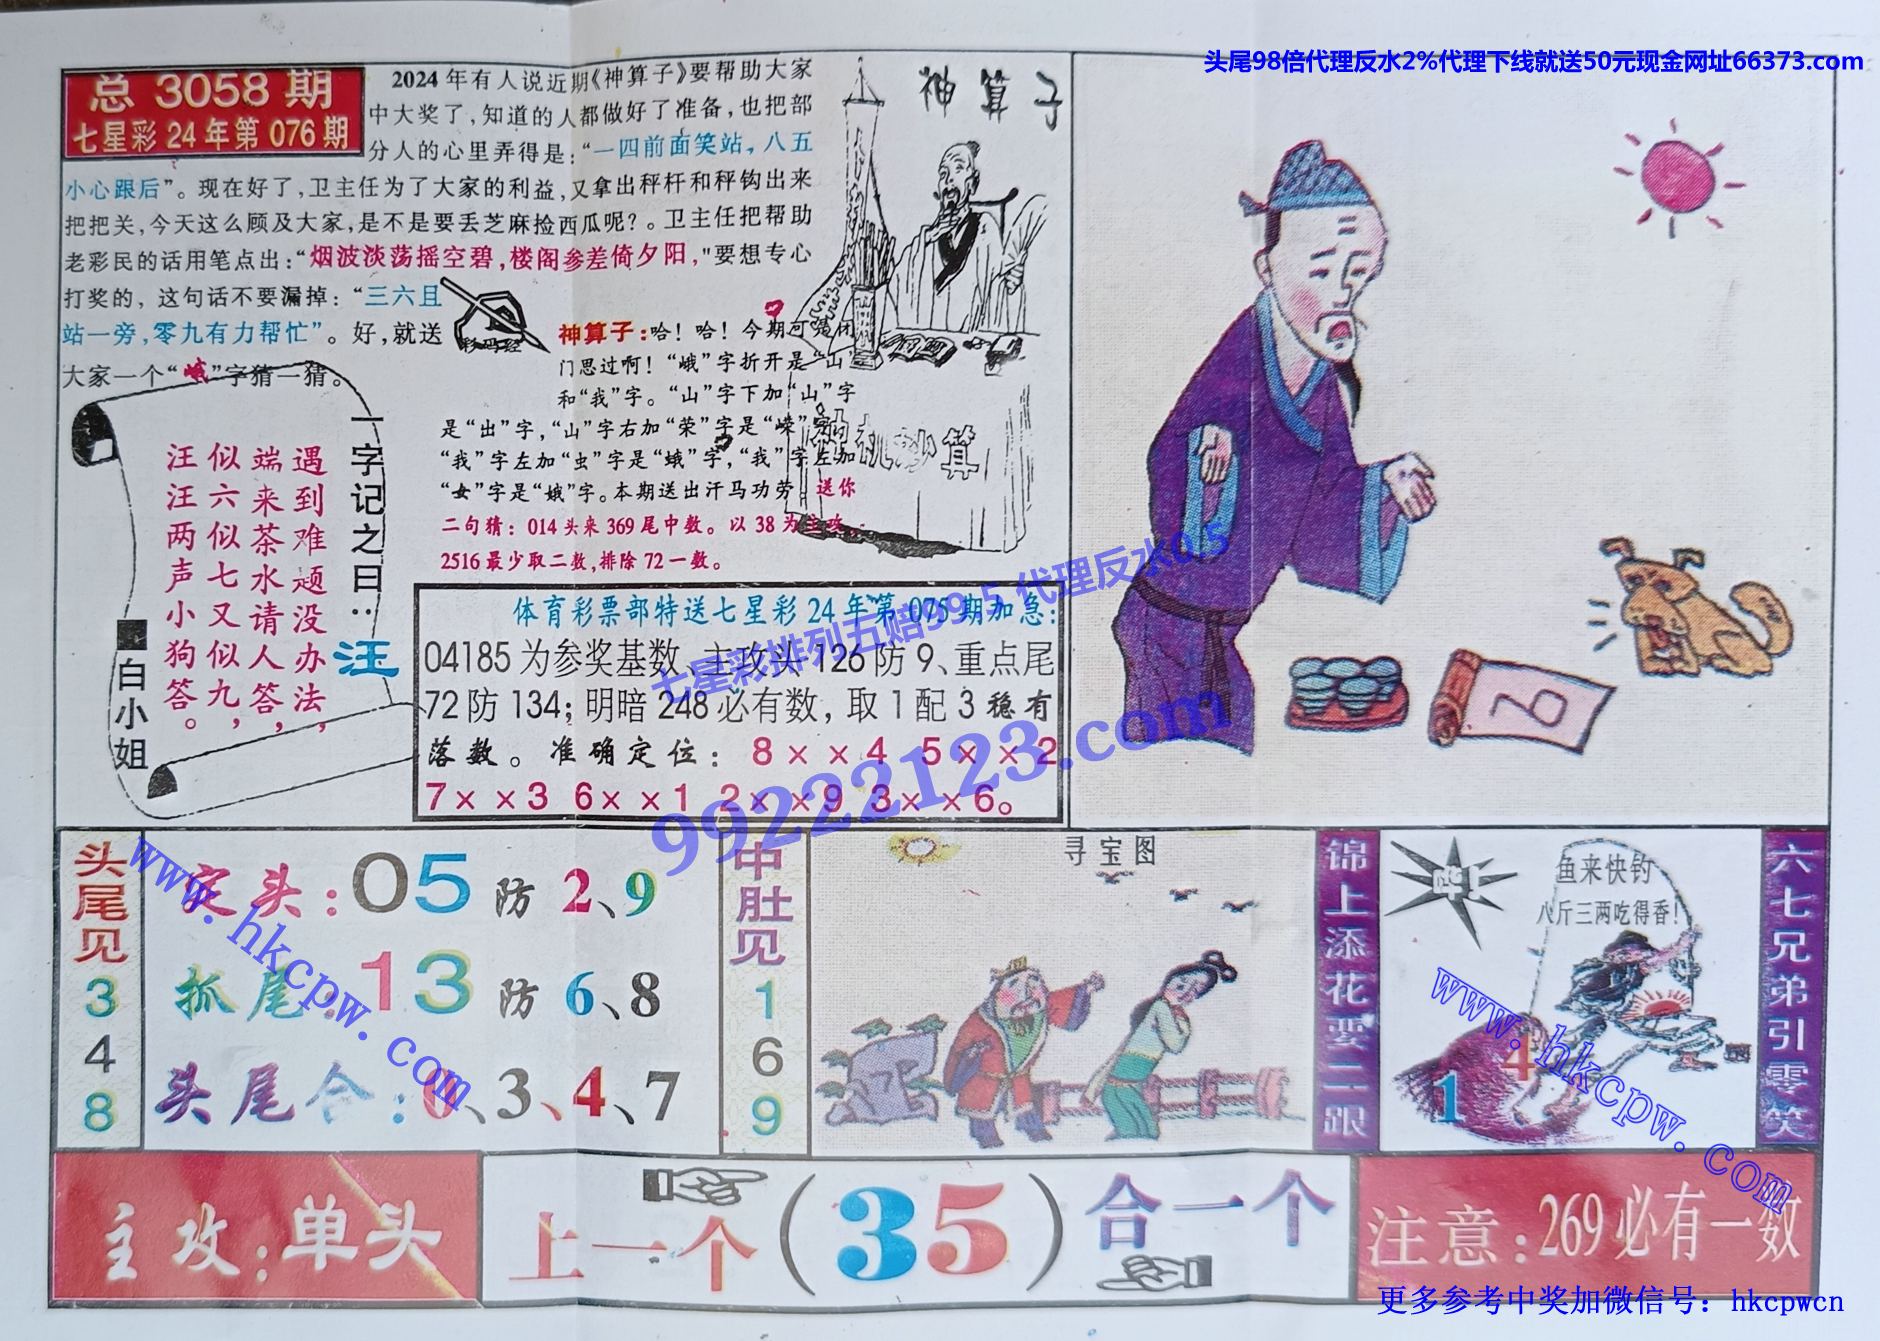 头尾98倍代理反水2%代理下线就送50元现金网址66373.com
总 3058 期
七星彩 24 年第 076 期
2024 年有人说近期《神算子》要帮助大家
中大奖了，知道的人都做好了准备，也把部
分人的心里弄得是：“一四前面笑站，八五
小心跟后”。现在好了，卫主任为了大家的利益，又拿出秤杆和秤钩出来
把把关，今天这么顾及大家，是不是要丢芝麻捡西瓜呢？。卫主任把帮助
老彩民的话用笔点出：“烟波淡荡摇空碧，楼阁参差倚夕阳，"要想专心
打奖的，这句话不要漏掉：“三六且
站一旁，零九有力帮忙”。好，就送
大家一个“峨”字猜一猜。
彩码经
神算子
神算子：哈！哈！今期可是闭
门思过啊！“峨”字折开是“山”
和“我”字。“山”字下加“山”字
是“出”字，“山”字右加“荣”字是“嵘”字，
“我”字左加“虫”字是“蛾”字，“我”字左加
“女”字是“娥”字。本期送出汗马功劳，送你
二句猜：014 头来 369 尾中数。以 38 为主攻，
2516 最少取二数，排除 72 一数。
机妙算
一字记之曰：汪
遇到难题没办法，
端来茶水请人答，
似六似七又似九，
汪汪两声小狗答。
白小姐
体育彩票部特送七星彩 24 年第 075 期加急：
04185 为参奖基数、主攻头 126 防 9、重点尾
72 防 134；明暗 248 必有数，取 1 配 3 稳有
落数。准确定位：8××4 5××2
7××3 6××1 2××9 3××6。
七星彩排列五赔99.5 代理反水0.5
99222123.com
头尾见
3
4
8
定头：05 防 2、9
抓尾：13 防 6、8
头尾合：0、3、4、7
www.hkcpw.com
中肚见
1
6
9
寻宝图
锦上添花要二跟
鱼来快钓
八斤三两吃得香！
1
4
www.hkcpw.com
六七兄弟引零笑
主攻：单头
上一个（35）合一个
注意：269 必有一数
更多参考中奖加微信号：hkcpwcn